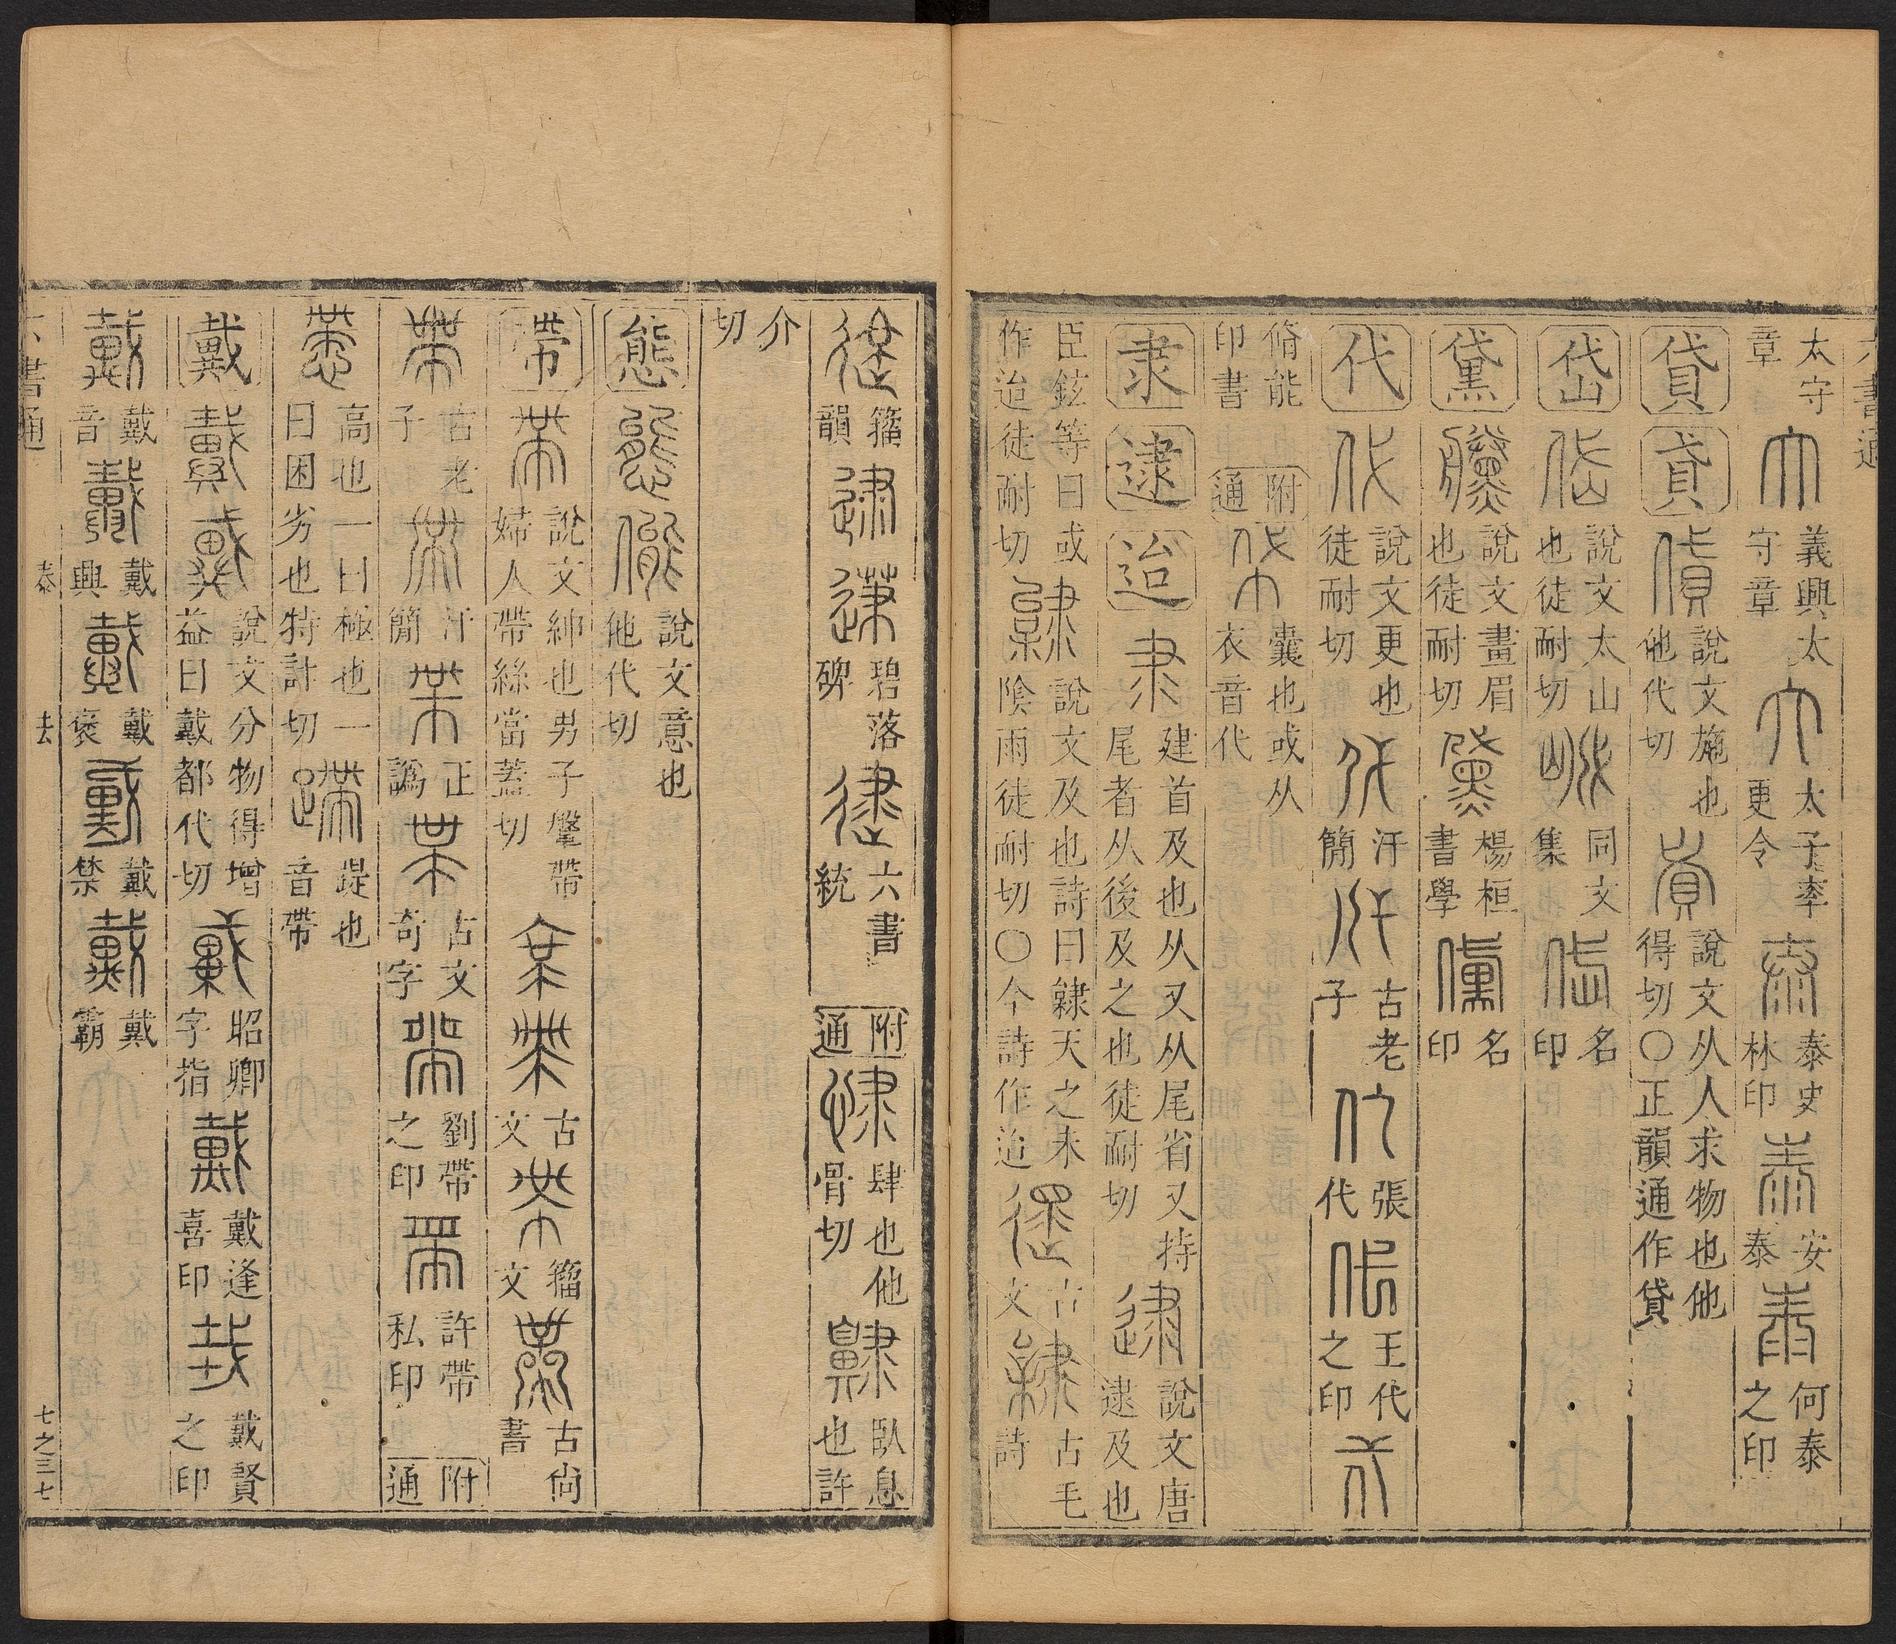 六書通
太守章 義興太守章 太子率更令 泰史林印 安泰 何泰之印
貸 貣 說文施也他代切 說文从人求物也他得切〇正韻通作貸
岱 說文太山也徒耐切 同文集 名印
黛 說文畫眉也徒耐切 楊桓書學 名印
代 說文更也徒耐切 汗簡 古老子 張代 王代之印
脩能印書 附通 囊也或从衣音代
隶 逮 迨 建首及也从又从尾省又持尾者从後及之也徒耐切 說文唐逮及也
臣鉉等曰或作迨徒耐切 說文及也詩曰隸天之未陰雨徒耐切〇今詩作迨 古文 古毛詩
籀韻 碧落碑 六書統 附通 肆也他骨切 臥息也許
介切
態 說文意也他代切
帶 說文紳也男子鞶帶婦人帶絲當蓋切 古文 籀文 古尚書
古老子 汗簡 正譌 古文奇字 劉帶之印 許帶私印 附通
高也一曰極也一曰困劣也特計切〇 踶也音帶
戴 說文分物得增益曰戴都代切 昭卿字指 戴逢喜印 戴賢之印
戴音 戴興 戴褒 戴禁 戴霸
六書通 泰 去 七之三七